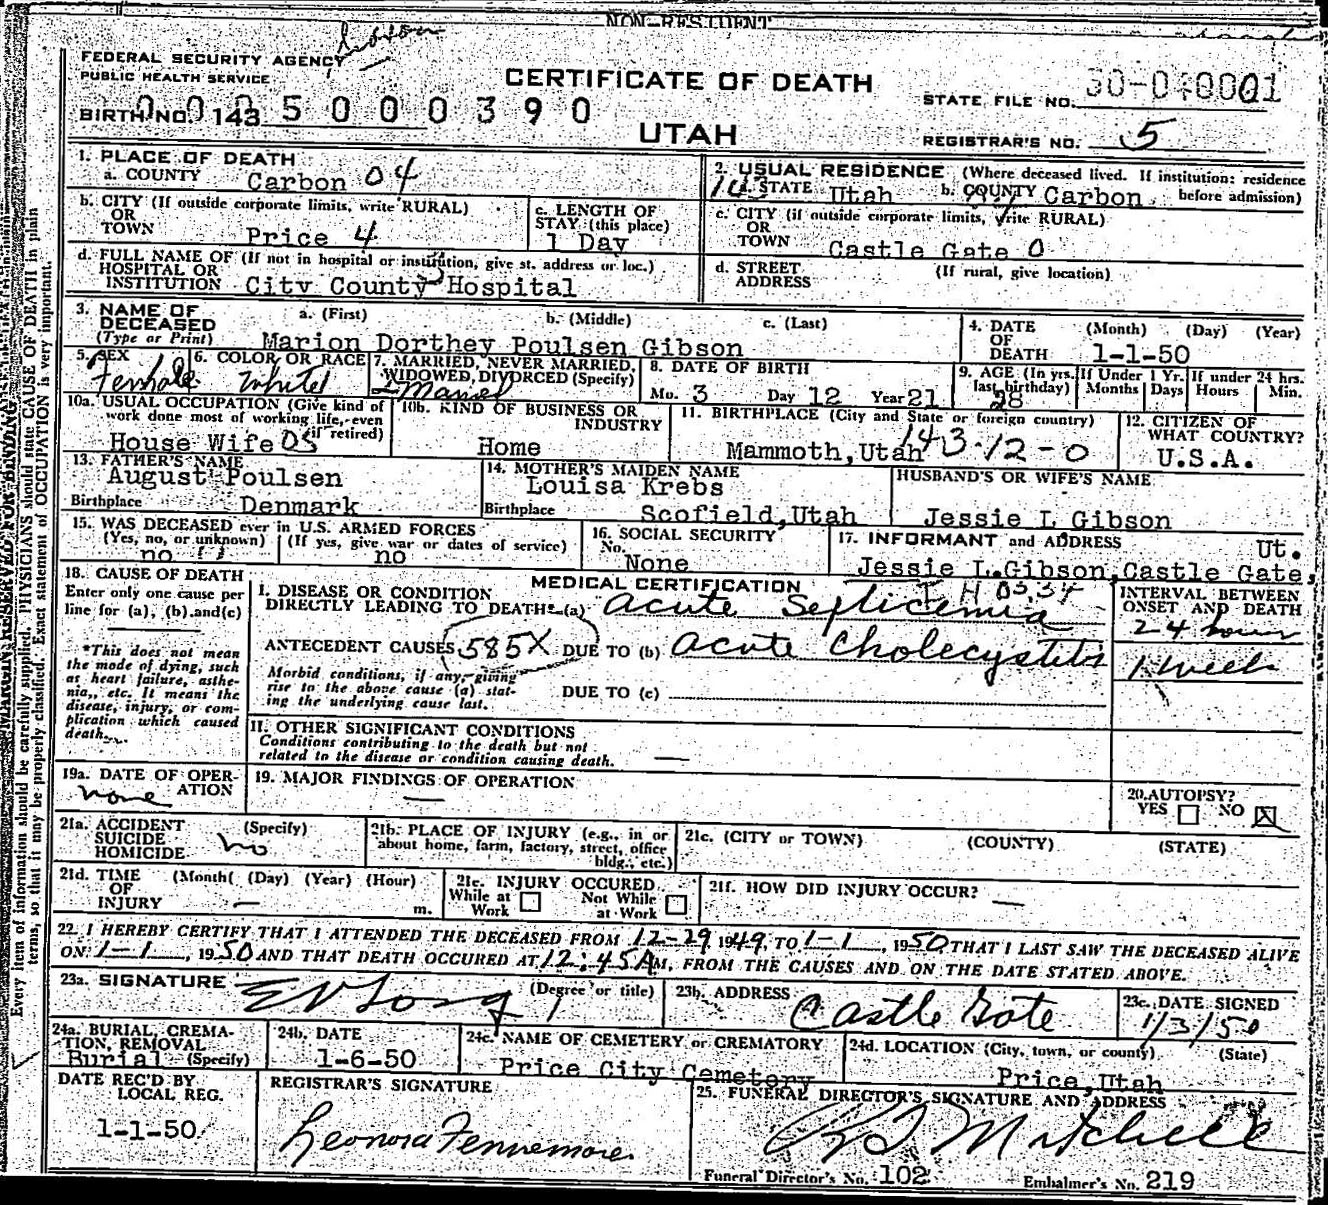 NON-RESIDENT
FEDERAL SECURITY AGENCY
PUBLIC HEALTH SERVICE
CERTIFICATE OF DEATH
UTAH
BIRTH NO. 143 5 0 0 0 3 9 0
STATE FILE NO.
REGISTRAR'S NO. 5
1. PLACE OF DEATH
a. COUNTY Carbon 04
b. CITY (If outside corporate limits, write RURAL)
OR
TOWN Price 4
c. LENGTH OF
STAY (this place)
1 Day
d. FULL NAME OF (If not in hospital or institution, give st. address or loc.)
HOSPITAL OR
INSTITUTION City County Hospital
2. USUAL RESIDENCE (Where deceased lived. If institution: residence
before admission)
143 a. STATE Utah b. COUNTY Carbon
c. CITY (if outside corporate limits, write RURAL)
OR
TOWN Castle Gate 0
d. STREET
ADDRESS
(If rural, give location)
3. NAME OF
DECEASED
(Type or Print)
a. (First) b. (Middle) c. (Last)
Marion Dorthey Poulsen Gibson
4. DATE
OF
DEATH
(Month) (Day) (Year)
1-1-50
5. SEX
Female
6. COLOR OR RACE
White
7. MARRIED, NEVER MARRIED,
WIDOWED, DIVORCED (Specify)
Married
8. DATE OF BIRTH
Mo. 3 Day 12 Year 21
9. AGE (In yrs.
last birthday)
28
If Under 1 Yr.
Months Days
If under 24 hrs.
Hours Min.
10a. USUAL OCCUPATION (Give kind of
work done most of working life, even
if retired)
House Wife
10b. KIND OF BUSINESS OR
INDUSTRY
Home
11. BIRTHPLACE (City and State or foreign country)
Mammoth, Utah 143-12-0
12. CITIZEN OF
WHAT COUNTRY?
U.S.A.
13. FATHER'S NAME
August Poulsen
Birthplace Denmark
14. MOTHER'S MAIDEN NAME
Louisa Krebs
Birthplace Scofield, Utah
HUSBAND'S OR WIFE'S NAME
Jessie L Gibson
15. WAS DECEASED ever in U.S. ARMED FORCES
(Yes, no, or unknown) (If yes, give war or dates of service)
no no
16. SOCIAL SECURITY
No.
None
17. INFORMANT and ADDRESS
Ut.
Jessie L.Gibson, Castle Gate,
18. CAUSE OF DEATH
Enter only one cause per
line for (a), (b) and (c)
*This does not mean
the mode of dying, such
as heart failure, asthe-
nia, etc. It means the
disease, injury, or com-
plication which caused
death.
MEDICAL CERTIFICATION
I. DISEASE OR CONDITION
DIRECTLY LEADING TO DEATH*(a) Acute Septicemia
ANTECEDENT CAUSES 585X DUE TO (b) Acute Cholecystitis
Morbid conditions, if any, giving
rise to the above cause (a) stat-
ing the underlying cause last.
DUE TO (c)
II. OTHER SIGNIFICANT CONDITIONS
Conditions contributing to the death but not
related to the disease or condition causing death. —
INTERVAL BETWEEN
ONSET AND DEATH
24 hours
1 week
19a. DATE OF OPER-
ATION
none
19. MAJOR FINDINGS OF OPERATION
—
20. AUTOPSY?
YES NO X
21a. ACCIDENT
SUICIDE
HOMICIDE
(Specify)
no
21b. PLACE OF INJURY (e.g., in or
about home, farm, factory, street, office
bldg., etc.)
21c. (CITY or TOWN) (COUNTY) (STATE)
21d. TIME
OF
INJURY
(Month( (Day) (Year) (Hour)
— m.
21e. INJURY OCCURED
While at
Work
Not While
at Work
21f. HOW DID INJURY OCCUR? —
22. I HEREBY CERTIFY THAT I ATTENDED THE DECEASED FROM 12-29, 1949, TO 1-1, 1950 THAT I LAST SAW THE DECEASED ALIVE
ON 1-1, 1950 AND THAT DEATH OCCURED AT 12:45AM, FROM THE CAUSES AND ON THE DATE STATED ABOVE.
23a. SIGNATURE (Degree or title)
23b. ADDRESS
Castle Gate
23c. DATE SIGNED
1/3/50
24a. BURIAL, CREMA-
TION, REMOVAL
Burial (Specify)
24b. DATE
1-6-50
24c. NAME OF CEMETERY or CREMATORY
Price City Cemetery
24d. LOCATION (City, town, or county) (State)
Price, Utah
DATE REC'D BY
LOCAL REG.
1-1-50
REGISTRAR'S SIGNATURE
Leonora Fennemore.
25. FUNERAL DIRECTOR'S SIGNATURE AND ADDRESS
Mitchell
Funeral Director's No. 102
Embalmer's No. 219
MARGIN RESERVED FOR BINDING
Every item of information should be carefully supplied. PHYSICIANS should state CAUSE OF DEATH in plain
terms, so that it may be properly classified. Exact statement of OCCUPATION is very important.